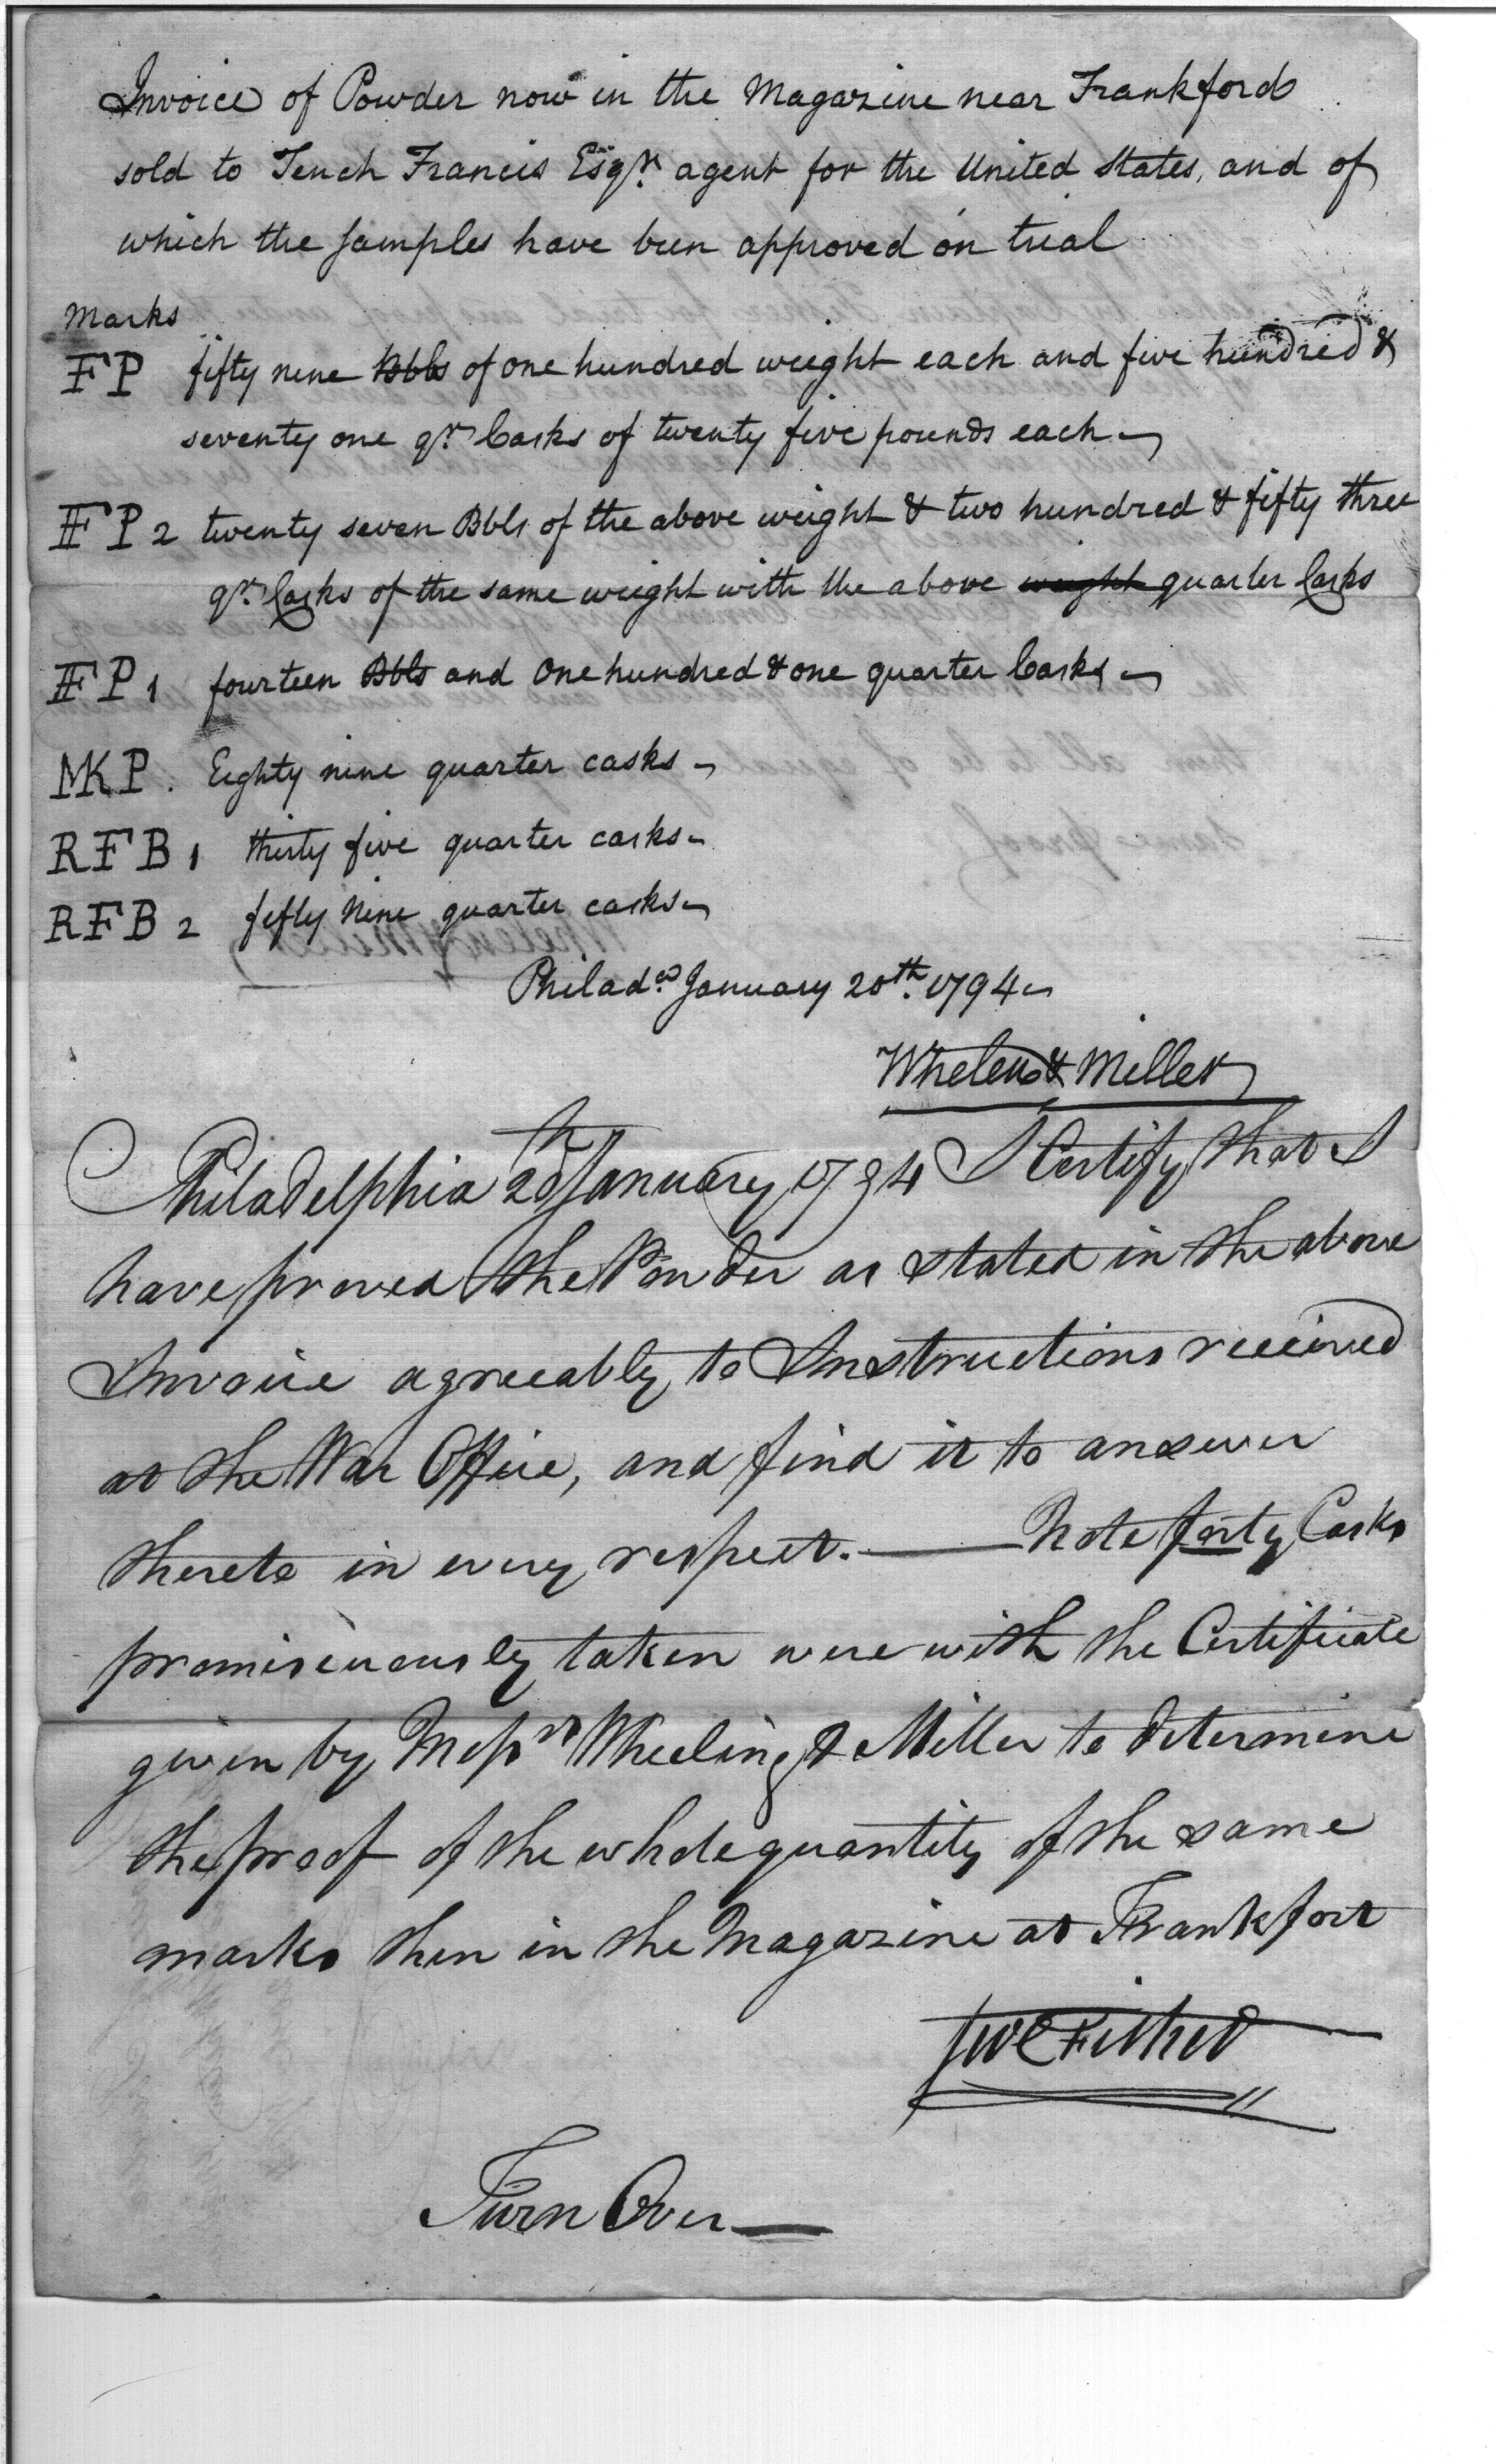 Invoice of Powder now in the Magazine near Frankford
sold to Tench Francis Esqr. agent for the United States, and of
which the samples have been approved on trial
Marks
FP fifty nine Bbls of one hundred weight each and five hundred &
seventy one qr. Casks of twenty five pounds each
FFP 2 twenty seven Bbls of the above weight & two hundred & fifty three
qr. Casks of the same weight with the above weight quarter Casks
FFP 1 fourteen Bbls and One hundred & one quarter Casks
MKP. Eighty nine quarter casks
RFB 1 thirty five quarter casks
RFB 2 fifty Nine quarter casks
Philada. January 20th. 1794
Whelen & Miller
Philadelphia 20th January 1794 I Certify that I
have proved the Powder as stated in the above
Invoice agreeably to Instructions received
at the War Office, and find it to answer
thereto in every respect. — Note forty Casks
promiscuously taken were with the Certificate
given by Messrs Wheeling & Miller to determine
the proof of the whole quantity of the same
marks then in the Magazine at Frankfort
Fisher
Turn Over